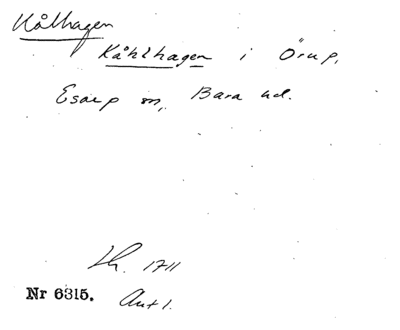 Kålhagen
Kåhlhagen i Örup,
Esarp sn, Bara hd.
Lh. 1711
Nr 6315. Avt 1.